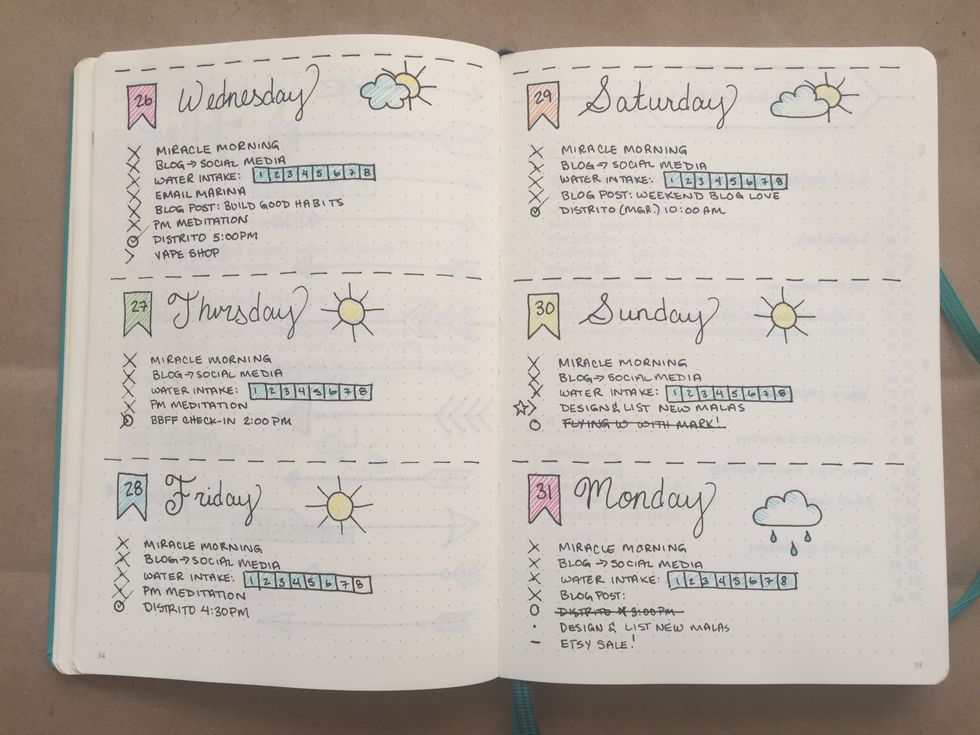 26 Wednesday
X MIRACLE MORNING
X BLOG → SOCIAL MEDIA
X WATER INTAKE: 1 2 3 4 5 6 7 8
X EMAIL MARINA
X BLOG POST: BUILD GOOD HABITS
X PM MEDITATION
O DISTRITO 5:00PM
> VAPE SHOP
27 Thursday
X MIRACLE MORNING
X BLOG → SOCIAL MEDIA
X WATER INTAKE: 1 2 3 4 5 6 7 8
X PM MEDITATION
O BBFF CHECK-IN 2:00 PM
28 Friday
X MIRACLE MORNING
X BLOG → SOCIAL MEDIA
X WATER INTAKE: 1 2 3 4 5 6 7 8
X PM MEDITATION
O DISTRITO 4:30PM
34
29 Saturday
X MIRACLE MORNING
X BLOG → SOCIAL MEDIA
X WATER INTAKE: 1 2 3 4 5 6 7 8
X BLOG POST: WEEKEND BLOG LOVE
O DISTRITO (MGR.) 10:00 AM
30 Sunday
X MIRACLE MORNING
X BLOG → SOCIAL MEDIA
X WATER INTAKE: 1 2 3 4 5 6 7 8
☆ > DESIGN & LIST NEW MALAS
O FLYING W WITH MARK!
31 Monday
X MIRACLE MORNING
X BLOG → SOCIAL MEDIA
X WATER INTAKE: 1 2 3 4 5 6 7 8
X BLOG POST:
O DISTRITO 3:00 PM
· DESIGN & LIST NEW MALAS
– ETSY SALE!
35